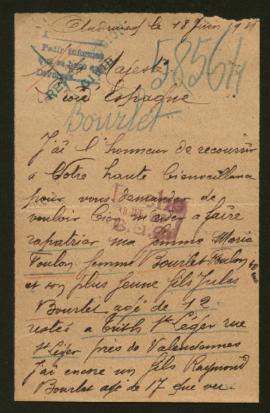 le 18 Juin 19
A
Pedir informes
58564
Majesté
Espagne
Bourlet
J'ai l'honneur de recourir
à Votre haute bienveillance
pour vous demander de
vouloir bien m'aider a faire
rapatrier ma femme Maria
Foulon femme Bourlet Foulon
et son plus jeune fils Jules
Bourlet agé de 12
restés a St Léger rue
St Léger près de Valenciennes
J'ai encore un fils Raymond
Bourlet agé de 17 que